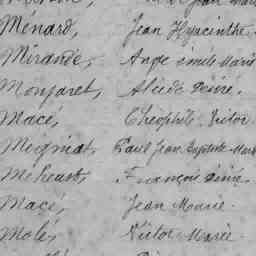 Ménard, Jean Hyacinthe
Mirande, Ange Emile Marie
Monjaret, Alcide Désiré,
Macé, Théophile Victor
Mugniat, Paul Jean Baptiste Marie
Meheust, François Désiré,
Macé, Jean Marie
Molé, Victor Marie